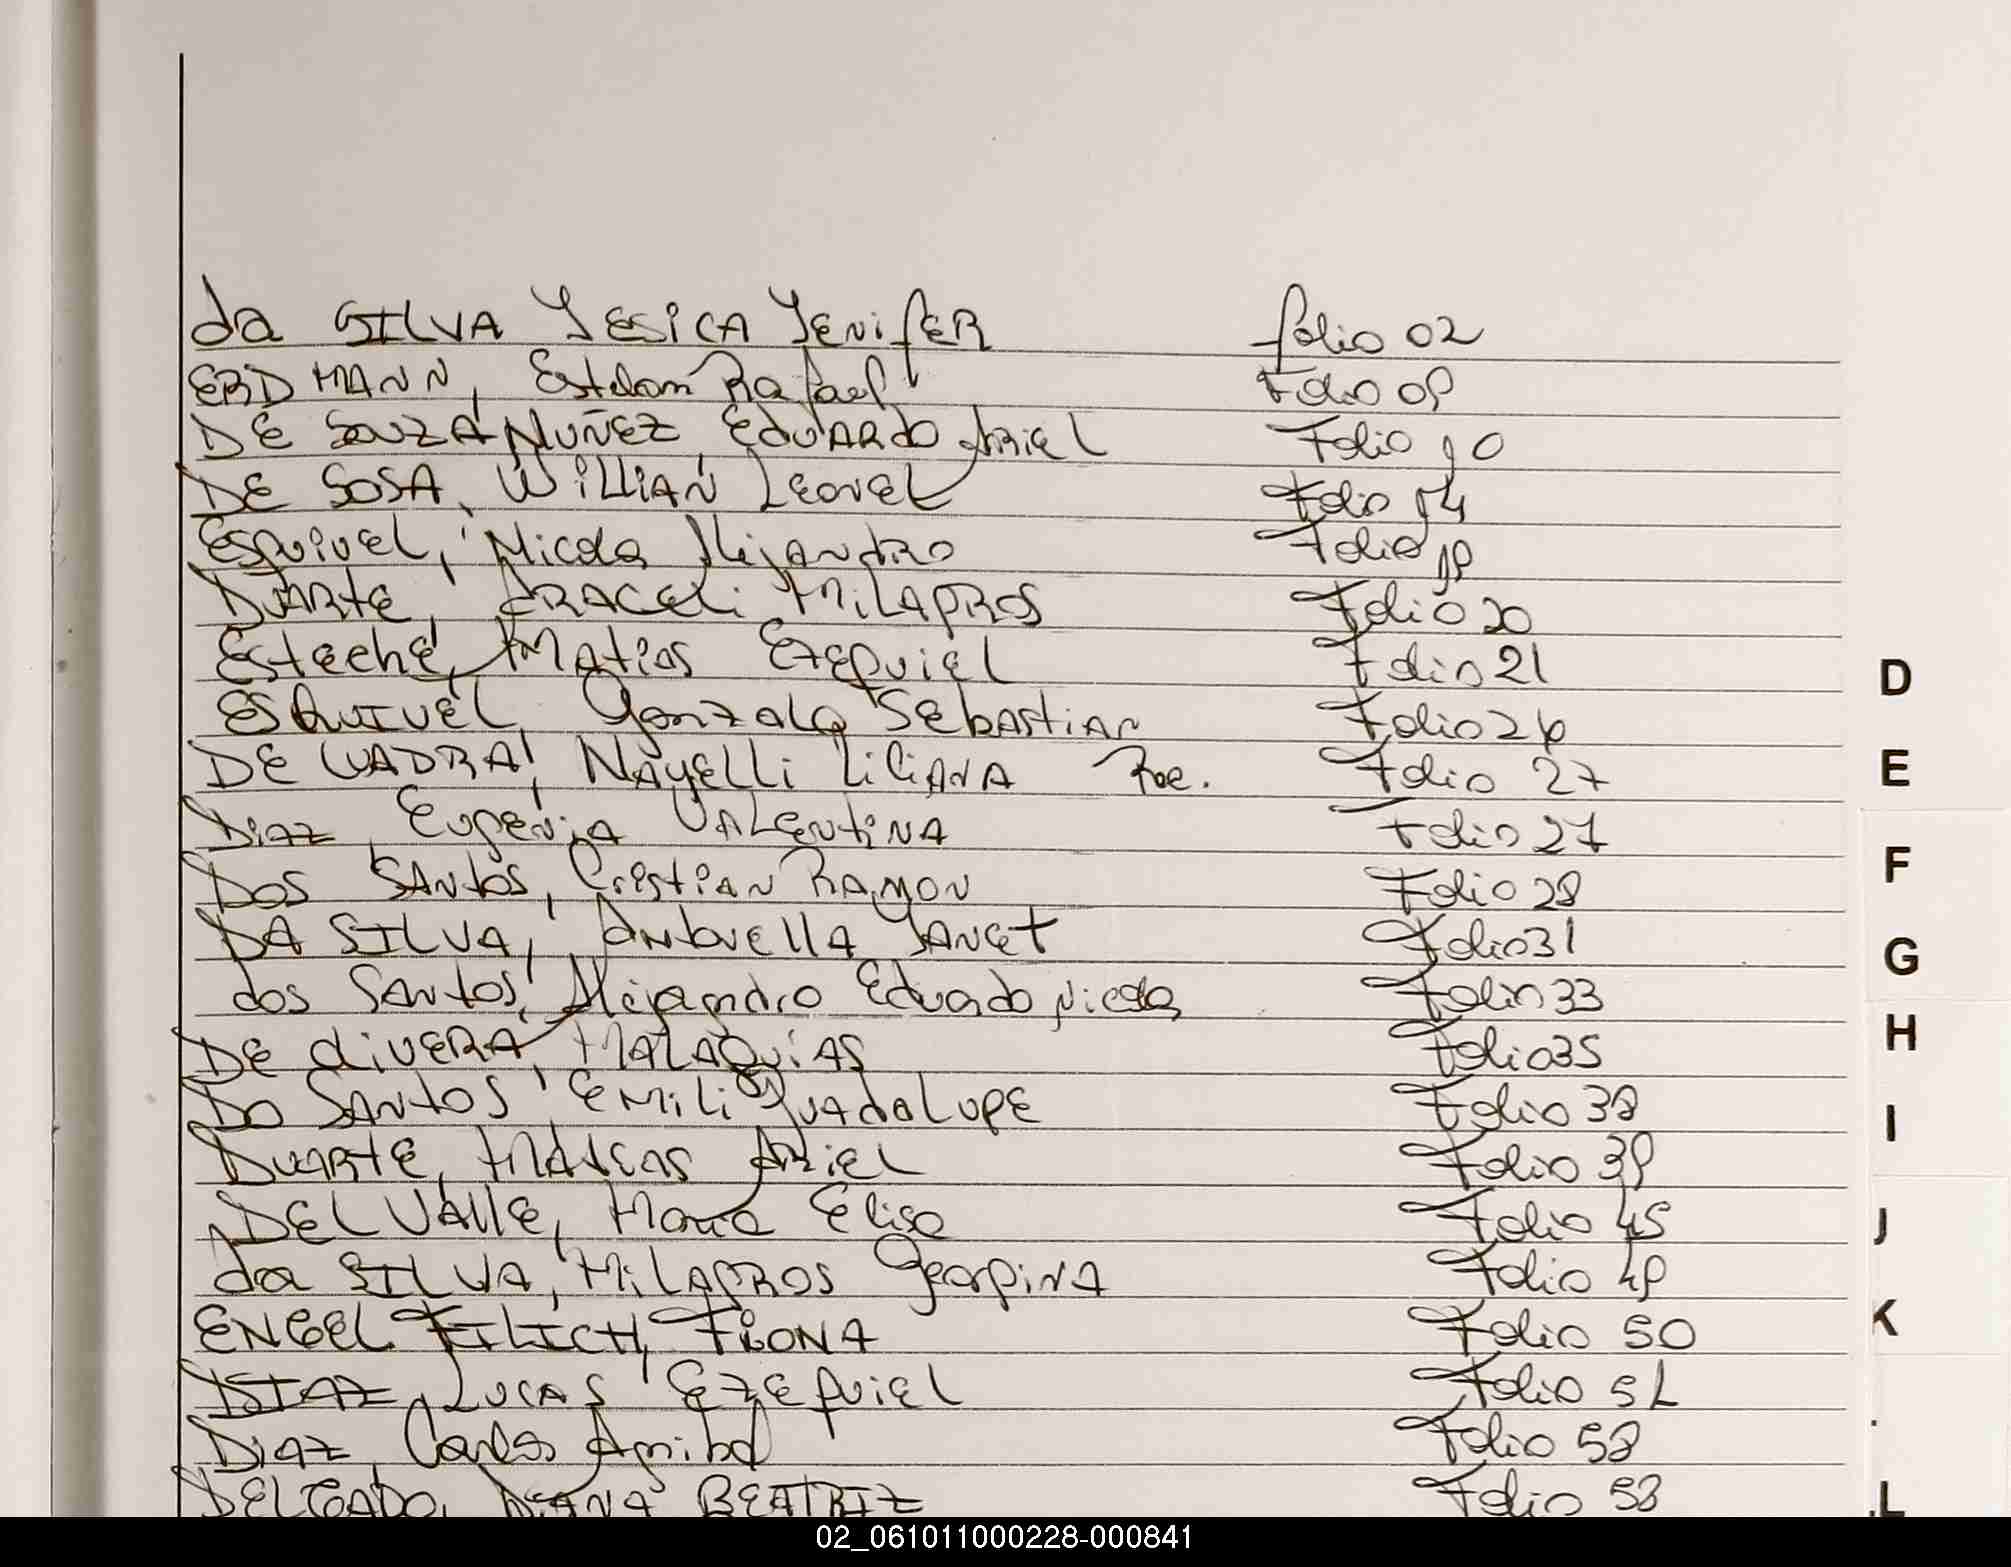 da SILVA YESICA YENifER folio 02
ERDMANN, Esteban Rafael Folio 09
DE SOUZA NUÑEZ, EDUARDO ARIEL Folio 10
DE SOSA, WILLIAN LEONEL Folio 14
ESQUIVEL, Nicolas Alejandro Folio 19
DUARTE, ARACELi MILAGROS Folio 20
Esteche, Matias Ezequiel Folio 21
ESQUIVEL Gonzalo SEbASTIAN Folio 26
DE CUADRA, NAYELLi LiLiANA Rae. Folio 27
Diaz, Eugenia VALENTINA Folio 27
DOS SANTOS, CRISTIAN RAMON Folio 28
DA SILVA, ANtOnELLA YANET Folio 31
dos Santos, Alejandro Eduardo Nicolas Folio 33
DE OLIVERA, MALAQUIAS Folio 35
DO SANTOS EMILI GUADALUPE Folio 38
DUARTE, MATEAS ARIEL Folio 39
DEL VALLE, Maria Elisa Folio 45
da SILVA, MILAGROS Georgina Folio 49
ENGEL FILICH, FIONA Folio 50
DIAZ, LUCAS EZEQUIEL Folio 51
DIAZ, Carlos Anibal Folio 58
DELGADO, DIANA BEATRIZ Folio 58
D
E
F
G
H
I
J
K
L
02_061011000228-000841